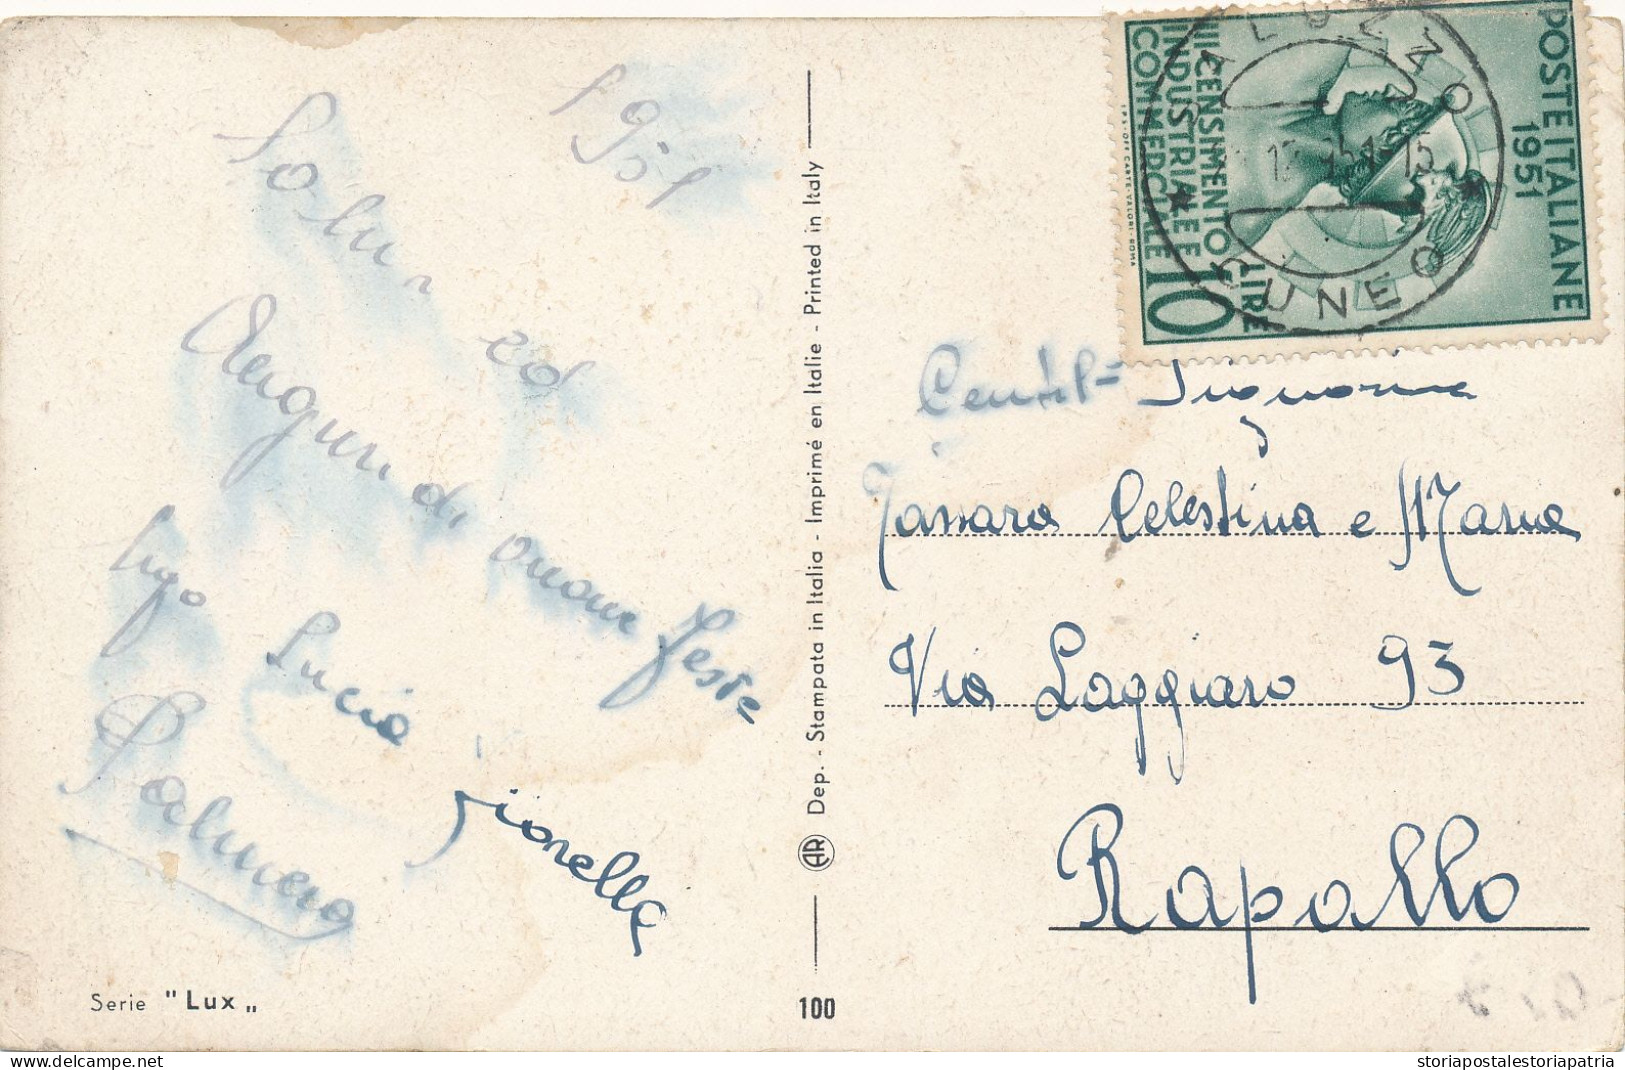 1951
Saluti ed
Auguri di buone feste
Ugo Lucia Fiorella
Palmero
Serie "Lux"
Dep. - Stampata in Italia - Imprimé en Italie - Printed in Italy
AR
100
POSTE ITALIANE
1951
III CENSIMENTO
INDUSTRIALE E
COMMERCIALE
LIRE
10
I.P.S.-OFF. CARTE-VALORI-ROMA
SALUZZO
CUNEO
Gentil= Signorine
Massaro Celestina e Maria
Via Laggiaro 93
Rapallo
storiapostalestoriapatria